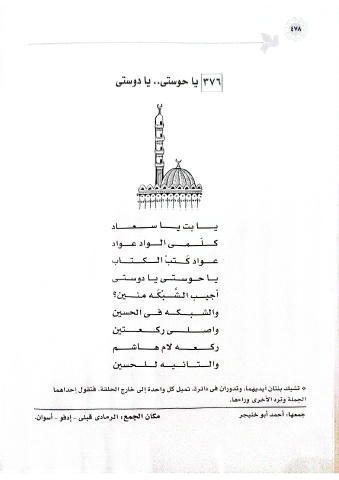 ٤٧٨
٣٧٦ يا حوستى.. يا دوستى
يا بت يا سعاد
كلمى الواد عواد
عواد كتب الكتاب
يا حوستى يا دوستى
أجيب الشبكه منين؟
والشبكه فى الحسين
واصلى ركعتين
ركعه لام هاشم
والتانيه للحسين
* تشبك بنتان أيديهما، وتدوران فى دائرة، تميل كل واحدة إلى خارج الحلقة، فتقول إحداهما
الجملة وترد الأخرى وراءها.
جمعها: أحمد أبو خنيجر
مكان الجمع: الرمادى قبلى - إدفو - أسوان.